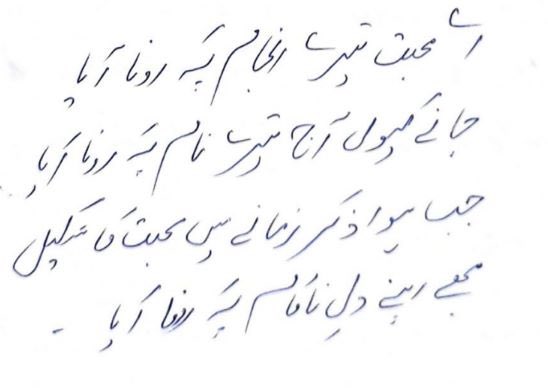 اے محبت تیرے انجام پہ رونا آیا
جانے کیوں آج تیرے نام پہ رونا آیا
جب ہوا ذکر زمانے میں محبت کا شکیل
مجھے اپنے دلِ ناکام پہ رونا آیا ۔